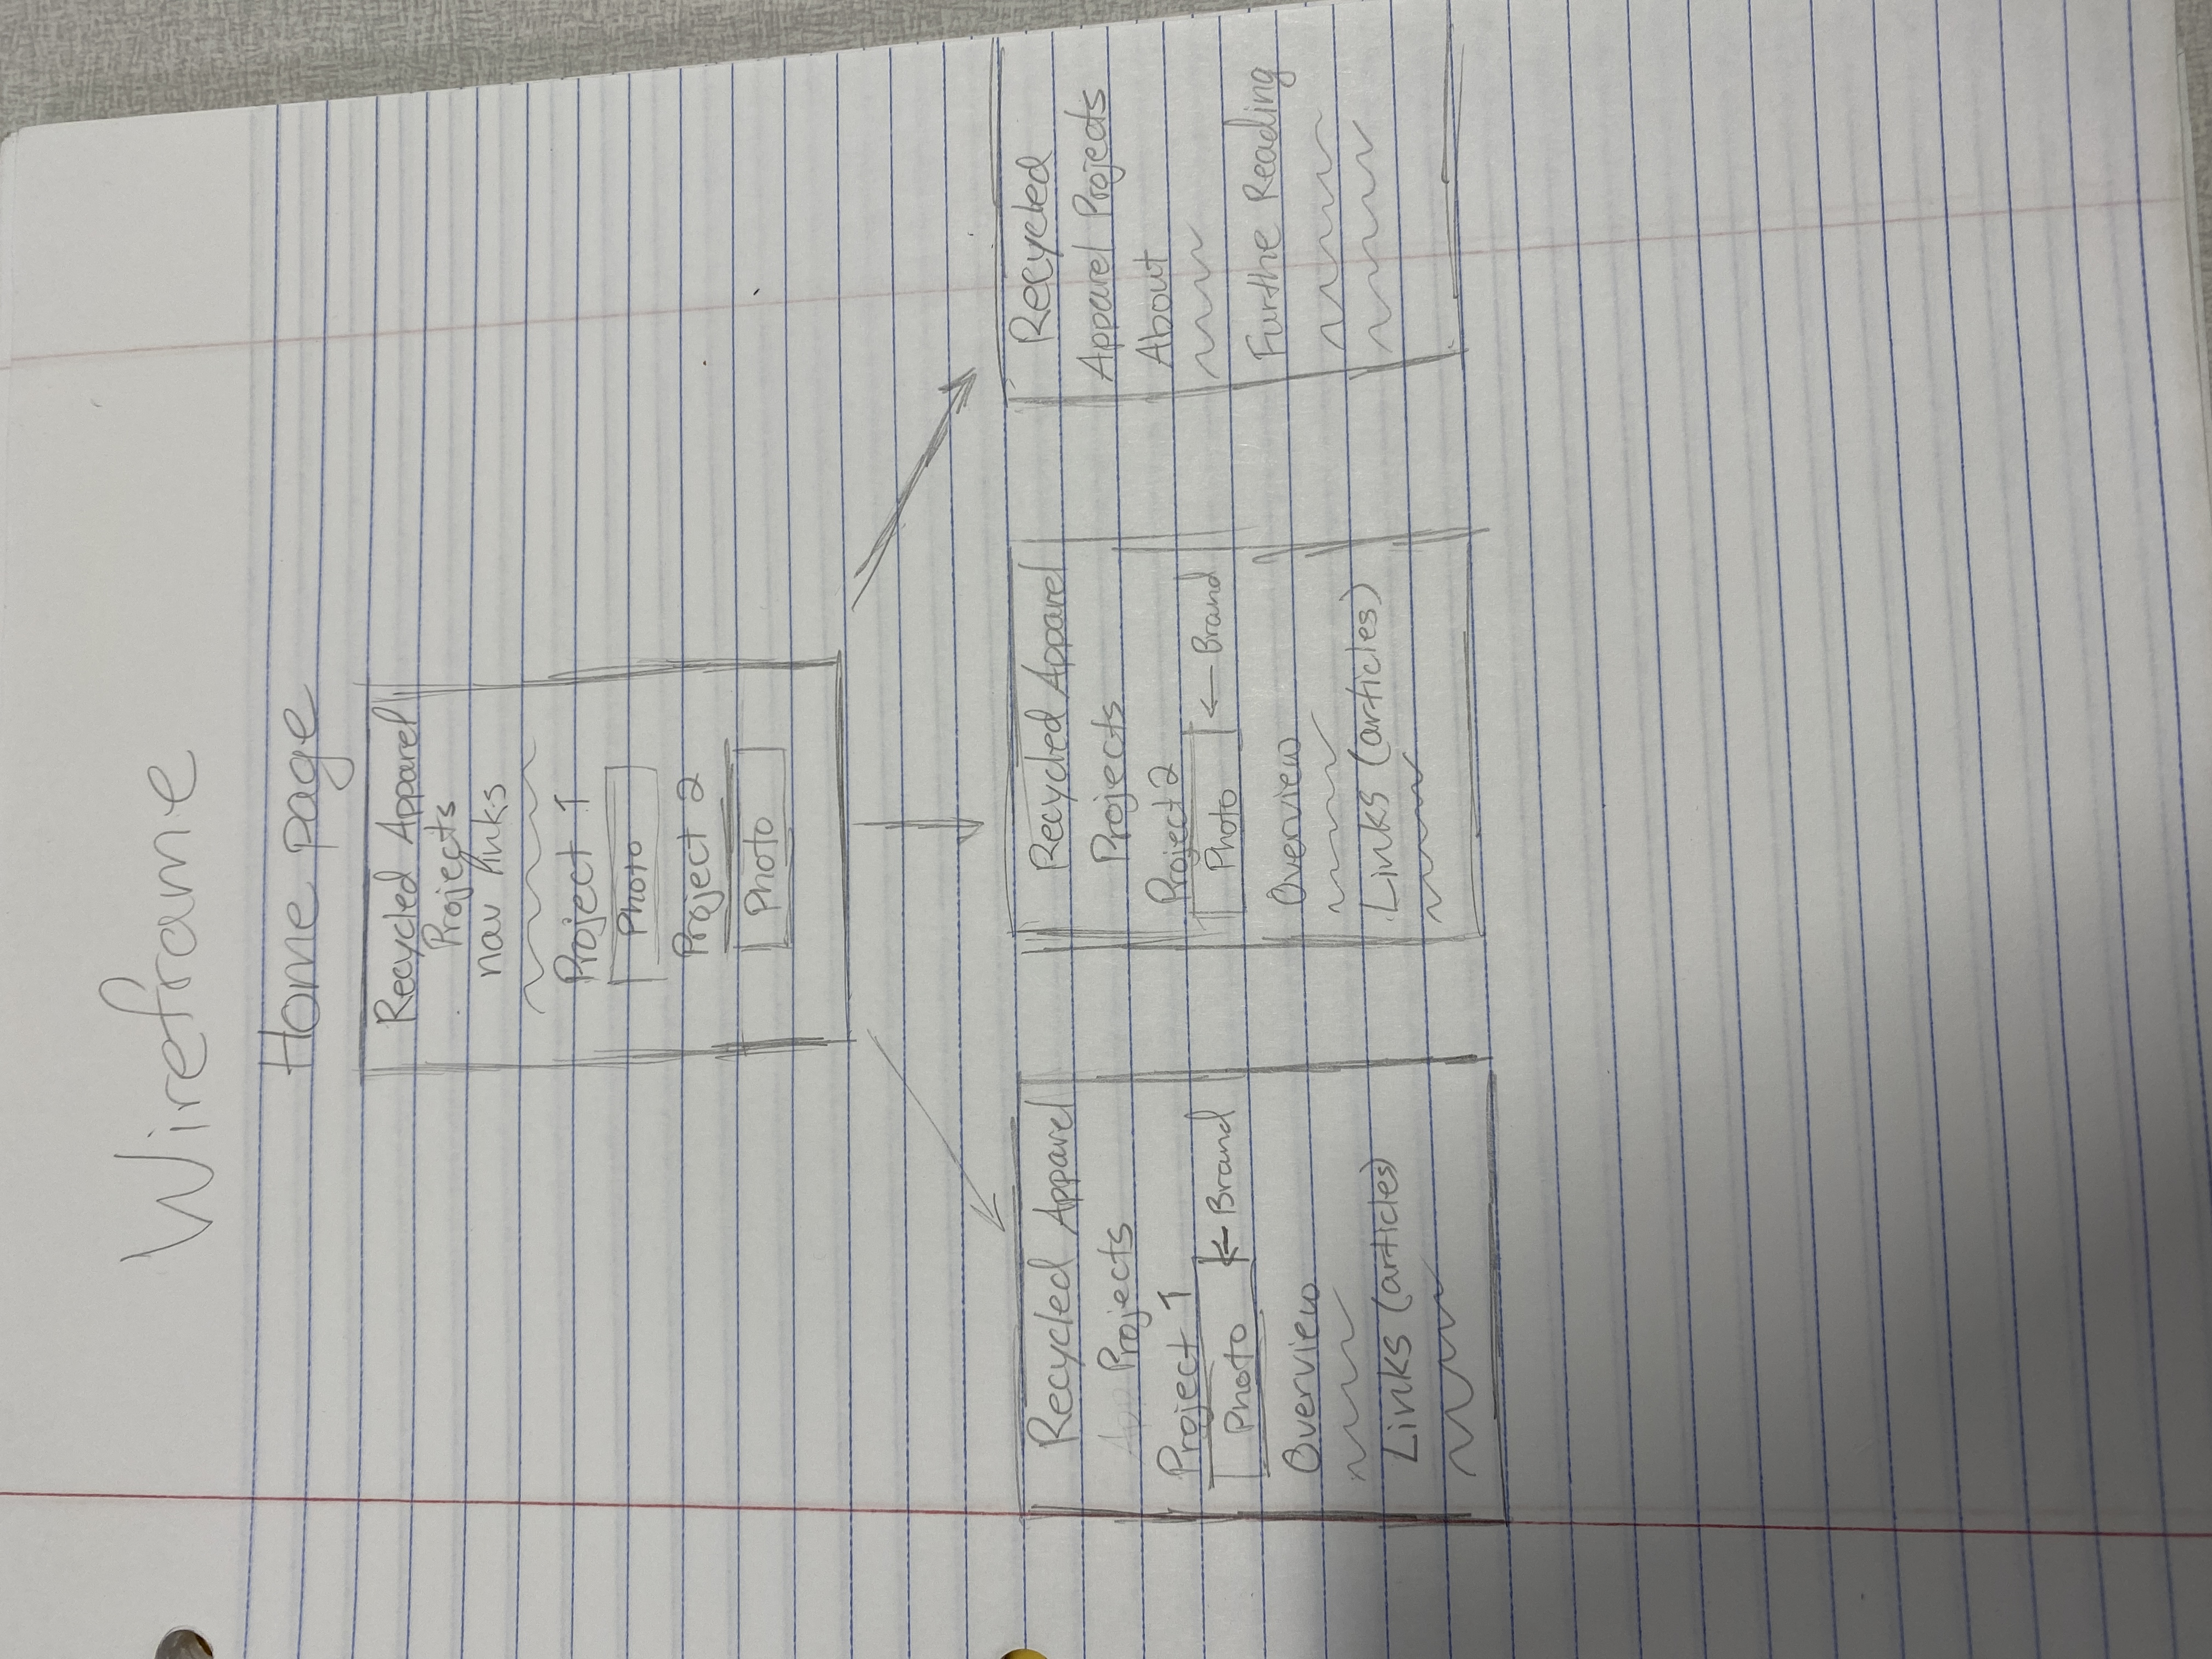 Wireframe
Home page
Recycled Apparel
Projects
nav links
Project 1
Photo
Project 2
Photo
Recycled Apparel
Projects
Project 1
Photo ← Brand
Overview
Links (articles)
Recycled Apparel
Projects
Project 2
Photo ← Brand
Overview
Links (articles)
Recycled
Apparel Projects
About
Furthe Reading